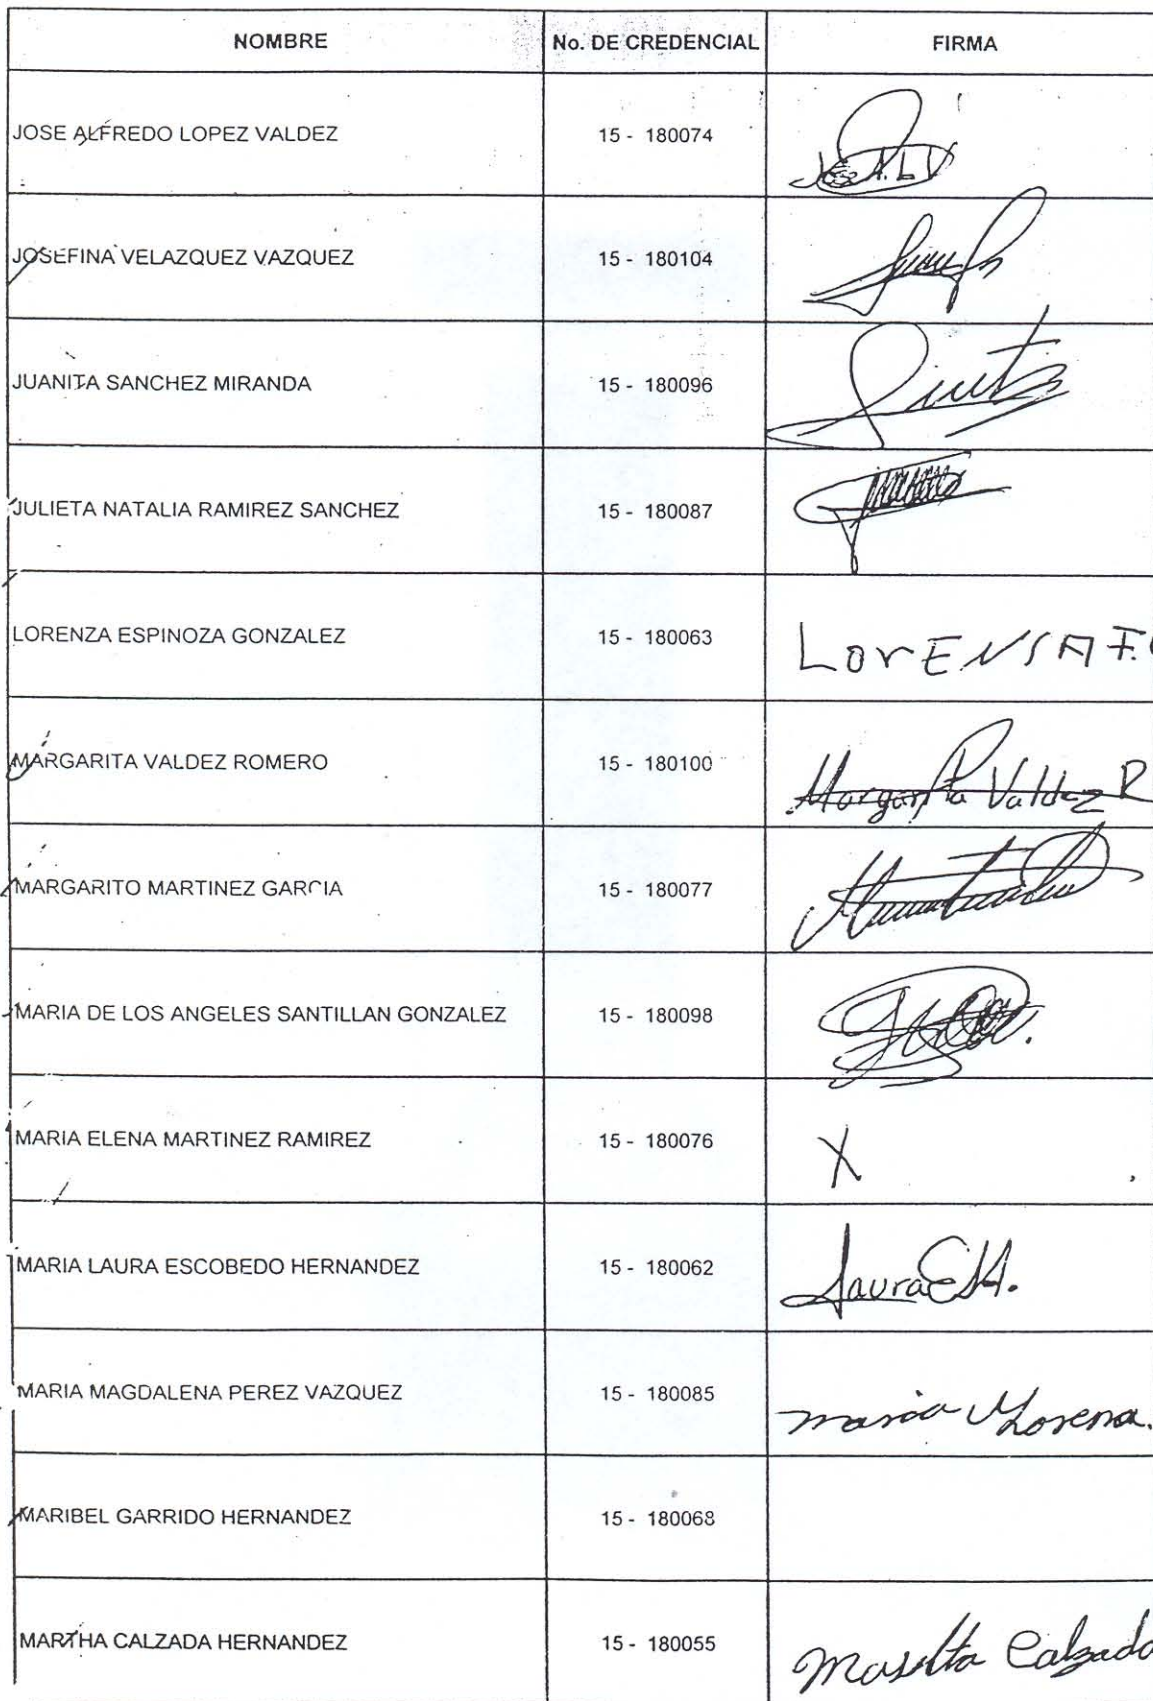 NOMBRE No. DE CREDENCIAL FIRMA
JOSE ALFREDO LOPEZ VALDEZ 15 - 180074
JOSEFINA VELAZQUEZ VAZQUEZ 15 - 180104
JUANITA SANCHEZ MIRANDA 15 - 180096
JULIETA NATALIA RAMIREZ SANCHEZ 15 - 180087
LORENZA ESPINOZA GONZALEZ 15 - 180063 LorENSA
MARGARITA VALDEZ ROMERO 15 - 180100 Margarita Valdez R
MARGARITO MARTINEZ GARCIA 15 - 180077
MARIA DE LOS ANGELES SANTILLAN GONZALEZ 15 - 180098
MARIA ELENA MARTINEZ RAMIREZ 15 - 180076 X
MARIA LAURA ESCOBEDO HERNANDEZ 15 - 180062 Laura E.H.
MARIA MAGDALENA PEREZ VAZQUEZ 15 - 180085 maria Lorena.
MARIBEL GARRIDO HERNANDEZ 15 - 180068
MARTHA CALZADA HERNANDEZ 15 - 180055 Martha Calzada